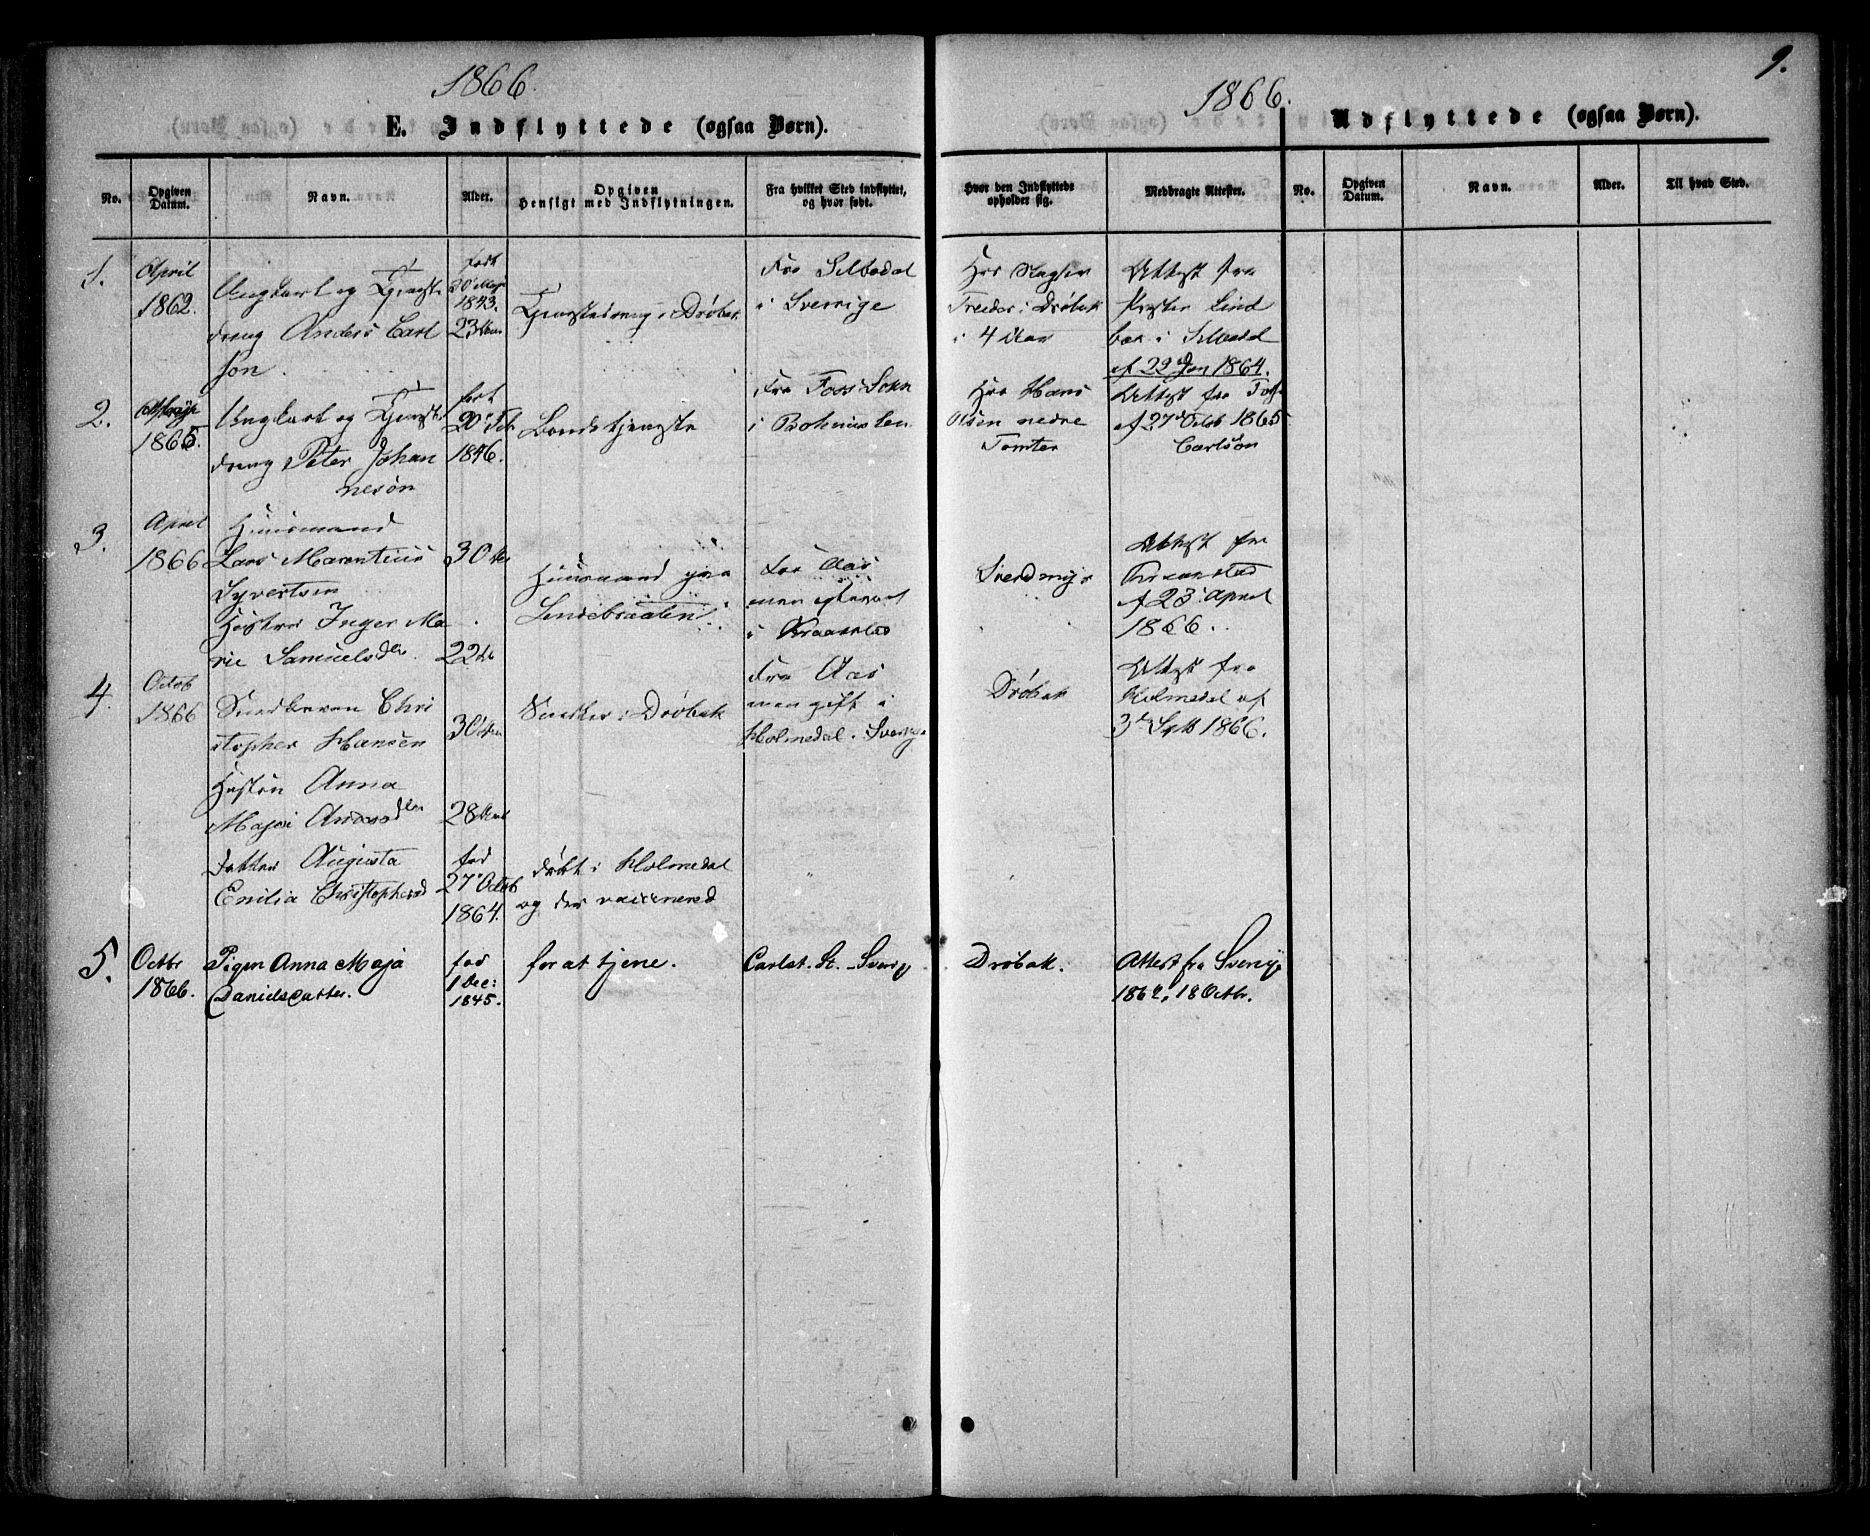 1866.
E. Indflyttede (ogsaa Børn).
No.
Opgiven Datum.
Navn.
Alder.
Opgiven Hensigt med Indflytningen.
Fra hvilket Sted indflyttet, og hvor født.
1.
April
1862.
Ungkarl og Tjeneste
dreng Anders Carl
son.
født
1843.
23
Tjenestedreng i Drøbak
Fra Silbodal
i Sverrige
2.
1865.
Ungkarl og Tjeneste
dreng Peter Johan
nesøn
født
20 Feb
1846.
Landstjeneste
Fra Foss Sokn
i Bohuuslen
3.
April
1866
Huusmand
Lars Marentius
Syvertsen
Hustru Inger Ma
rie Samuelsdtr
30
22
Huusmand paa
Fra Aas
i Kraakstad
4.
Octob
1866
Snedkeren Chri
stopher Hansen
Hustru Anna
Maja Andersdtr
Datter Augusta
Emilia Christophersd
30
28
fød
27 Octob
1864.
Snedker i Drøbak
født i Holmedal
og der vaccinered
Fra Aas
men gift i
Holmedal i Sverige
5.
Octbr
1866.
Pigen Anna Maja
Danielsdatter.
fød
1 Dec:
1845.
for at tjene.
Carlst. St. Sverig
1866.
Udflyttede (ogsaa Børn).
9.
Hvor den Indflyttede opholder sig.
Medbragte Attester.
No.
Opgiven Datum.
Navn.
Alder.
Til hvad Sted.
Hos Slagter
i Drøbak
i 4 Aar
Attest fra
Prester Lind
i Silbodal
af 22 Jan 1864.
Hos Hans
Olsen nedre
Tomter
Attest fra
af 27 Octob 1865
Carlson
Attest fra
Kraakstad
af 23 April
1866.
Drøbak
Attest fra
Holmedal af
3 Septb 1866.
Drøbak.
Attest fra Sverig
18 Octbr.